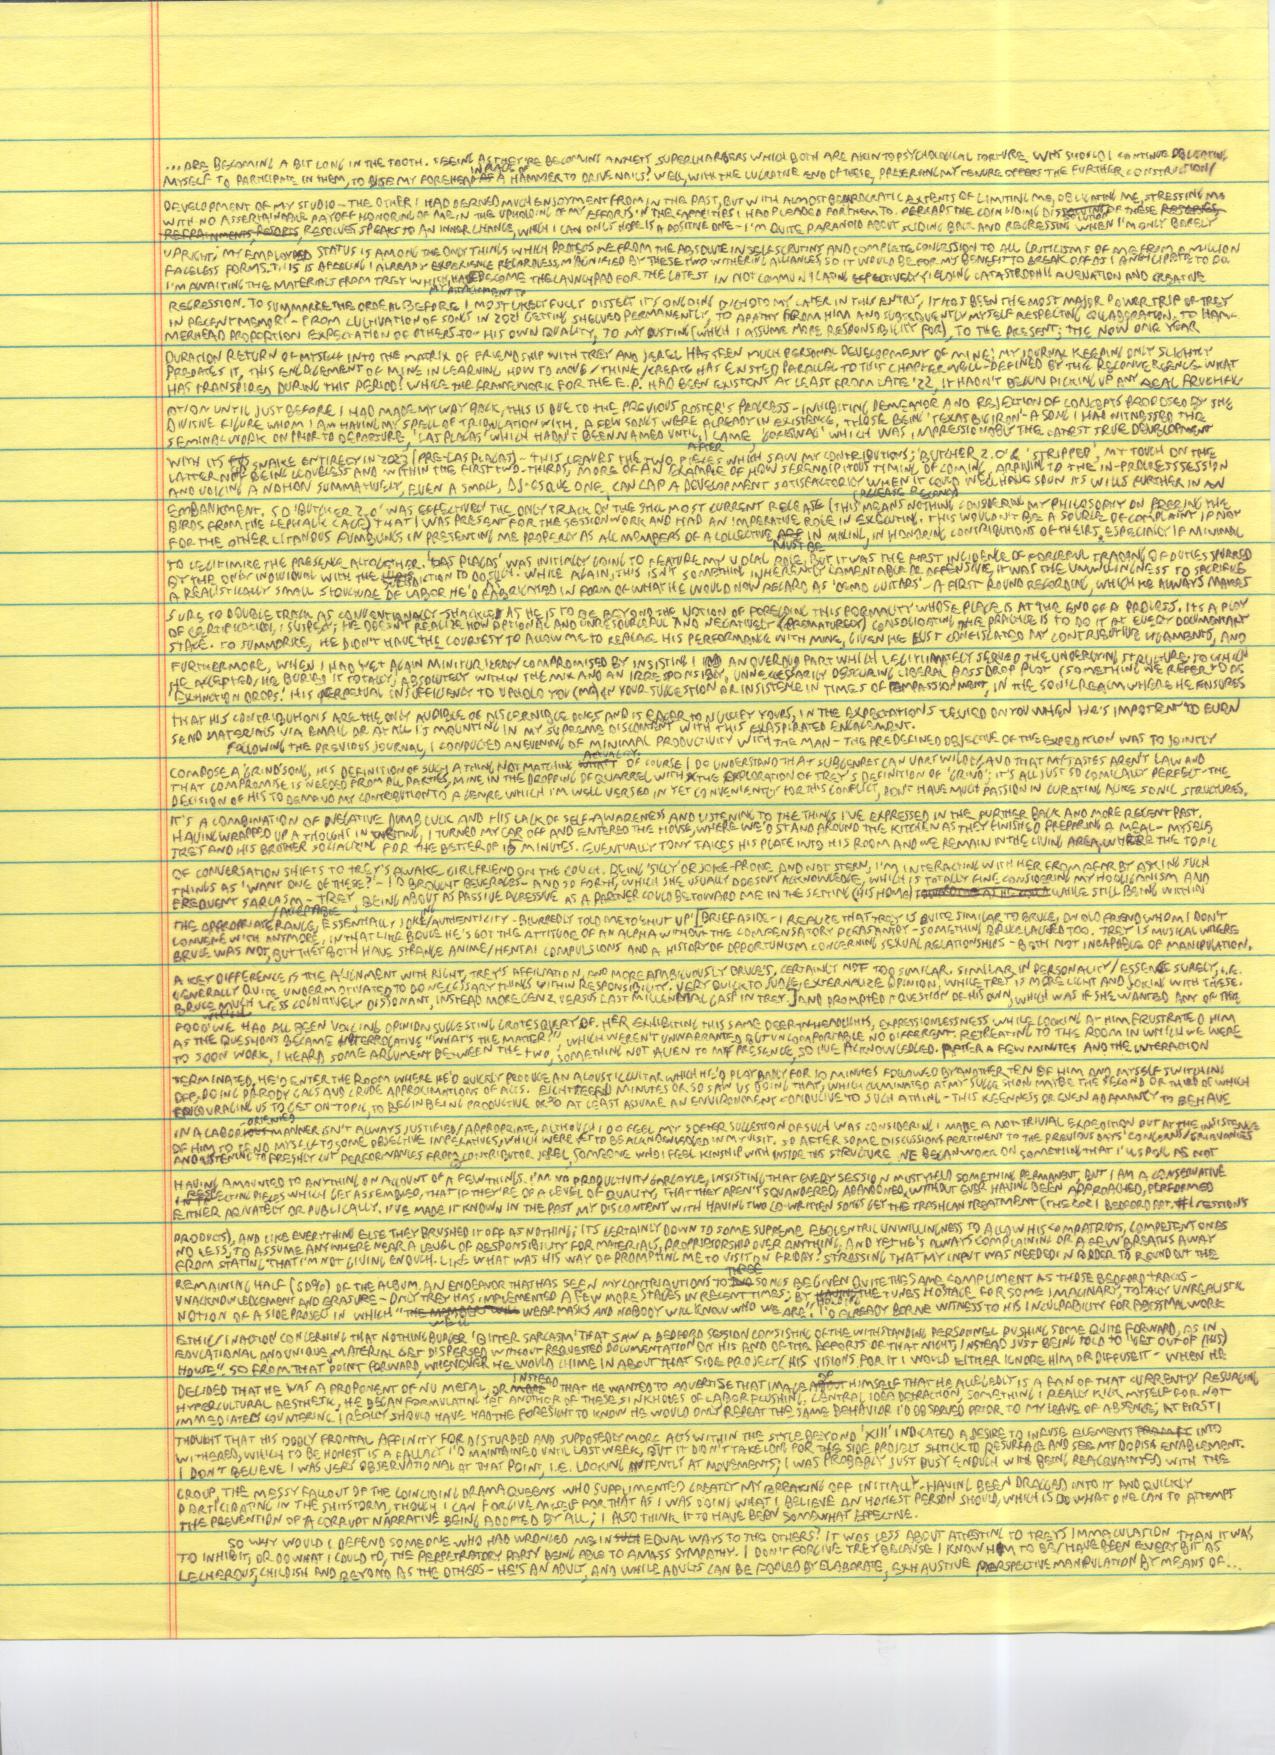 ...ARE BECOMING A BIT LONG IN THE TOOTH. SEEING AS THEY'RE BECOMING ANXIETY SUPERCHARGERS WHICH BOTH ARE AKIN TO PSYCHOLOGICAL TORTURE, WHY SHOULD I CONTINUE
MYSELF TO PARTICIPATE IN THEM, TO USE MY FOREHEAD IN PLACE OF A HAMMER TO DRIVE NAILS? WELL, WITH THE LUCRATIVE END OF THESE, PRESERVING MY TENURE OFFERS THE FURTHER CONSTRUCTION/
DEVELOPMENT OF MY STUDIO - THE OTHER I HAD DERIVED MUCH ENJOYMENT FROM IN THE PAST, BUT WITH ALMOST BUREAUCRATIC EXTENTS OF LIMITING ME, DELEGATING ME, STRESSING ME
WITH NO ASCERTAINABLE PAYOFF HONORING OF ME IN THE UPHOLDING OF MY EFFORTS IN THE CAPACITIES I HAD PLEADED FOR THEM TO. PERHAPS THE COINCIDING DISSOLUTION OF THESE
RESOLVES SPEAKS TO AN INNER CHANGE, WHICH I CAN ONLY HOPE IS A POSITIVE ONE - I'M QUITE PARANOID ABOUT SLIDING BACK AND REGRESSING WHEN I'M ONLY BARELY
UPRIGHT; MY EMPLOYED STATUS IS AMONG THE ONLY THINGS WHICH PROTECTS ME FROM THE ABSOLUTE IN SELF SCRUTINY AND COMPLETE CONCESSION TO ALL CRITICISMS OF ME FROM A MILLION
FACELESS FORMS. THIS IS A FEELING I ALREADY EXPERIENCE REGARDLESS, MAGNIFIED BY THESE TWO WITHERING ALLIANCES SO IT WOULD BE FOR MY BENEFIT TO BREAK OFF AS I ANTICIPATE TO DO.
I'M AWAITING THE MATERIALS FROM TREY WHICH HAVE BECOME THE LAUNCHPAD FOR THE LATEST IN NOT COMMUNICATING EFFECTIVELY YIELDING CATASTROPHIC ALIENATION AND CREATIVE
REGRESSION. TO SUMMARIZE THE ORDEAL BEFORE I MOST LIKELY FULLY DISSECT IT'S ONGOING DICHOTOMY LATER IN THIS ENTRY, IT HAS BEEN THE MOST MAJOR POWER TRIP OF TREY
IN RECENT MEMORY - FROM CULTIVATION OF SONGS IN 2021 GETTING SHELVED PERMANENTLY, TO APATHY FROM HIM AND SUBSEQUENTLY MYSELF RESPECTING COLLABORATION, TO HAM-
MERHEAD PROPORTION EXPECTATION OF OTHERS TO HIS OWN QUALITY, TO MY OUSTING (WHICH I ASSUME MORE RESPONSIBILITY FOR), TO THE PRESENT; THE NOW ONE YEAR
DURATION RETURN OF MYSELF INTO THE MATRIX OF FRIENDSHIP WITH TREY AND JEREL HAS SEEN MUCH PERSONAL DEVELOPMENT OF MINE; MY JOURNAL KEEPING ONLY SLIGHTLY
PREDATES IT, THIS ENGAGEMENT OF MINE IN LEARNING HOW TO MOVE/THINK/CREATE HAS EXISTED PARALLEL TO THIS CHAPTER WELL-DEFINED BY THE RECONVERGENCE. WHAT
HAS TRANSPIRED DURING THIS PERIOD? WHILE THE FRAMEWORK FOR THE E.P. HAD BEEN EXISTENT AT LEAST FROM LATE '22, IT HADN'T BEGUN PICKING UP ANY REAL FRUCTIFIC-
ATION UNTIL JUST BEFORE I HAD MADE MY WAY BACK, THIS IS DUE TO THE PREVIOUS ROSTER'S PROGRESS-INHIBITING DEMEANOR AND REJECTION OF CONCEPTS PROPOSED BY THE
DIVISIVE FIGURE WHOM I AM HAVING MY SPELL OF TRIBULATION WITH. A FEW SONGS WERE ALREADY IN EXISTENCE, THOSE BEING 'TEXAS BIG IRON' - A SONG I HAD WITNESSED THE
SEMINAL WORK ON PRIOR TO DEPARTURE, 'LAS PLAGAS' WHICH HADN'T BEEN NAMED UNTIL AFTER I CAME, WHICH WAS IMPRESSIONABLY THE LATEST TRUE DEVELOPMENT
WITH ITS SNAKE ENTIRECY IN 2023 (PRE-LAS PLAGAS) - THIS LEAVES THE TWO PIECES WHICH SAW MY CONTRIBUTIONS; 'BUTCHER 2.0' & 'STRIPPED', MY TOUCH ON THE
LATTER NOT BEING LOVELESS AND WITHIN THE FIRST TWO-THIRDS, MORE OF AN EXAMPLE OF HOW SERENDIPITOUS TIMING OF COMING, ARRIVING TO THE IN-PROGRESS SESSION
AND VOICING A NOTION SUMMATIVELY, EVEN A SMALL, DJ-ESQUE ONE, CAN CAP A DEVELOPMENT SATISFACTORILY WHEN IT COULD WELL HAVE SPUN ITS WILLS FURTHER IN AN
EMBANKMENT. SO 'BUTCHER 2.0' WAS EFFECTIVELY THE ONLY TRACK ON THE STILL MOST CURRENT RELEASE (THIS MEANS NOTHING CONSIDERING MY PHILOSOPHY ON FREEING THE
BIRDS FROM THE CEPHALIC CAGE) THAT I WAS PRESENT FOR THE SESSION WORK AND HAD AN IMPERATIVE ROLE IN EXECUTING. THIS WOULDN'T BE A SOURCE OF COMPLAINT IF NOT
FOR THE OTHER LITANOUS FUMBLINGS IN PRESENTING ME PROPERLY AS ALL MEMBERS OF A COLLECTIVE MUST BE IN MAKING, IN HONORING CONTRIBUTIONS OF THEIRS, ESPECIALLY IF MINIMAL
TO LEGITIMIZE THE PRESENCE ALTOGETHER. 'LAS PLAGAS' WAS INITIALLY GOING TO FEATURE MY VOCAL ROLE, BUT IT WAS THE FIRST INCIDENCE OF FORCEFUL TRADING OF DUTIES SPARKED
BY THE ONLY INDIVIDUAL WITH THE TO DO SUCH. WHILE AGAIN, THIS ISN'T SOMETHING INHERENTLY LAMENTABLE OR OFFENSIVE, IT WAS THE UNWILLINGNESS TO SACRIFICE
A REALISTICALLY SMALL STRUCTURE OF LABOR HE'D FABRICATED IN FORM OF WHAT HE WOULD NOW REGARD AS 'DEMO GUITARS' - A FIRST ROUND RECORDING, WHICH HE ALWAYS MAKES
SURE TO DOUBLE TRACK AS CONVENTIONALLY SHACKLED AS HE IS TO BE BEYOND THE NOTION OF FOREGOING THIS FORMALITY WHOSE PLACE IS AT THE END OF A PROCESS. ITS A PLOY
OF CERTIFICATION, I SUSPECT; HE DOESN'T REALIZE HOW OPTIONAL AND UNRESOURCEFUL AND NEGATIVELY (PREMATURELY) CONSOLIDATING THE PRACTICE IS TO DO IT AT EVERY DOCUMENTARY
STAGE. TO SUMMARIZE, HE DIDN'T HAVE THE COURTESY TO ALLOW ME TO REPLACE HIS PERFORMANCE WITH MINE, GIVEN HE JUST CONFISCATED MY CONTRIBUTIVE LIGAMENTS, AND
FURTHERMORE, WHEN I HAD YET AGAIN COMPROMISED BY INSISTING I AN OVERDUB PART WHICH LEGITIMATELY SERVED THE UNDERLYING STRUCTURE, TO WHICH
HE ACCEPTED, HE BURIED IT TOTALLY, ABSOLUTELY WITHIN THE MIX AND AN IRRESPONSIBLY, UNNECESSARILY OBSCURING LIBERAL BASS DROP PLOY (SOMETHING WE REFER TO AS
'EXTINCTION DROPS'. HIS PERPETUAL INSUFFICIENCY TO UPHOLD YOU (ME) IN YOUR SUGGESTION OR INSISTENCE IN TIMES OF IMPASSIONMENT, IN THE SONIC REALM WHERE HE ENSURES
THAT HIS CONTRIBUTIONS ARE THE ONLY AUDIBLE OR DISCERNIBLE ONES AND IS EAGER TO NULLIFY YOURS, IN THE EXPECTATIONS LEVIED ON YOU WHEN HE'S IMPOTENT TO EVEN
SEND MATERIALS VIA EMAIL OR AT ALL IS MOUNTING IN MY SUPREME DISCONTENT WITH THIS EXASPIRATED ENGAGEMENT.
FOLLOWING THE PREVIOUS JOURNAL, I CONDUCTED AN EVENING OF MINIMAL PRODUCTIVITY WITH THE MAN - THE PREDEFINED OBJECTIVE OF THE EXPEDITION WAS TO JOINTLY
COMPOSE A 'GRIND' SONG, HIS DEFINITION OF SUCH A THING NOT MATCHING ACTUALITY. OF COURSE I DO UNDERSTAND THAT SUBGENRES CAN VARY WILDLY AND THAT MY TASTES AREN'T LAW AND
THAT COMPROMISE IS NEEDED FROM ALL PARTIES, MINE IN THE DROPPING OF QUARREL WITH THE EXPLORATION OF TREY'S DEFINITION OF 'GRIND'; IT'S ALL JUST SO COMICALLY PERFECT - THE
DECISION OF HIS TO DEMAND MY CONTRIBUTION TO A GENRE WHICH I'M WELL VERSED IN YET CONVENIENTLY FOR THIS CONFLICT, DON'T HAVE MUCH PASSION IN CURATING ALIKE SONIC STRUCTURES.
IT'S A COMBINATION OF NEGATIVE DUMB LUCK AND HIS LACK OF SELF-AWARENESS AND LISTENING TO THE THINGS I'VE EXPRESSED IN THE FURTHER BACK AND MORE RECENT PAST.
HAVING WRAPPED UP A THOUGHT IN WRITING, I TURNED MY CAR OFF AND ENTERED THE HOUSE, WHERE WE'D STAND AROUND THE KITCHEN AS THEY FINISHED PREPARING A MEAL - MYSELF,
TREY AND HIS BROTHER SOCIALIZING FOR THE BETTER OF 15 MINUTES. EVENTUALLY TONY TAKES HIS PLACE INTO HIS ROOM AND WE REMAIN IN THE LIVING AREA, WHERE THE TOPIC
OF CONVERSATION SHIFTS TO TREY'S AWAKE GIRLFRIEND ON THE COUCH. BEING 'SILLY' OR JOKE-PRONE AND NOT STERN, I'M INTERACTING WITH HER FROM AFAR BY ASKING SUCH
THINGS AS 'WANT ONE OF THESE?' - I'D BROUGHT BEVERAGES - AND SO FORTH, WHICH SHE USUALLY DOESN'T ACKNOWLEDGE, WHICH IS TOTALLY FINE CONSIDERING MY HOOLIGANISM AND
FREQUENT SARCASM - TREY, BEING ABOUT AS PASSIVE AGRESSIVE AS A PARTNER COULD BE TOWARD ME IN THE SETTING (HIS HOME) WHILE STILL BEING WITHIN
THE APPROPRIATE/ACCEPTABLE RANGE, ESSENTIALLY JOKING/AUTHENTICITY - BLURREDLY TOLD ME TO SHUT UP [BRIEF ASIDE - I REALIZE THAT TREY IS QUITE SIMILAR TO BRUCE, AN OLD FRIEND WHOM I DON'T
CONVENE WITH ANYMORE, IN THAT LIKE BRUCE HE'S GOT THE ATTITUDE OF AN ALPHA WITHOUT THE COMPENSATORY PLEASANTRY - SOMETHING BRUCE LACKED TOO. TREY IS MUSICAL WHERE
BRUCE WAS NOT, BUT THEY BOTH HAVE STRANGE ANIME/HENTAI COMPULSIONS AND A HISTORY OF OPPORTUNISM CONCERNING SEXUAL RELATIONSHIPS - BOTH NOT INCAPABLE OF MANIPULATION.
A KEY DIFFERENCE IS THE ALIGNMENT WITH RIGHT, TREY'S AFFILIATION, AND MORE AMBIGUOUSLY BRUCE'S, CERTAINLY NOT TOO SIMILAR. SIMILAR IN PERSONALITY/ESSENCE SURELY, I.E.
GENERALLY QUITE UNDERMOTIVATED TO DO NECESSARY THINGS WITHIN RESPONSIBILITY. VERY QUICK TO JUDGE, EXTERNALIZE OPINION, WHILE TREY IS MORE LIGHT AND JOKING WITH THESE.
BRUCE MUCH LESS COGNITIVELY DISSONANT, INSTEAD MORE GEN Z VERSUS LAST MILLENNIAL GASP IN TREY.] AND PROMPTED A QUESTION OF HIS OWN, WHICH WAS IF SHE WANTED ANY OF THE
FOOD WE HAD ALL BEEN VOICING OPINION SUGGESTING GROTESQUERY OF. HER EXHIBITING THIS SAME DEER-IN-HEADLIGHTS, EXPRESSIONLESSNESS WHILE LOOKING AT HIM FRUSTRATED HIM
AS THE QUESTIONS BECAME INTERROGATIVE "WHAT'S THE MATTER?", WHICH WEREN'T UNWARRANTED BUT UNCOMFORTABLE NO DIFFERENT. RETREATING TO THE ROOM IN WHICH WE WERE
TO SOON WORK, I HEARD SOME ARGUMENT BETWEEN THE TWO, SOMETHING NOT ALIEN TO MY PRESENCE, SO I'VE ACKNOWLEDGED. AFTER A FEW MINUTES AND THE INTERACTION
TERMINATED, HE'D ENTER THE ROOM WHERE HE'D QUICKLY PRODUCE AN ACOUSTIC GUITAR WHICH HE'D PLAY BADLY FOR 10 MINUTES FOLLOWED BY ANOTHER TEN OF HIM AND MYSELF SWITCHING
OFF, DOING PARODY GAGS AND CRUDE APPROXIMATIONS OF ACTS. EIGHTEEN MINUTES OR SO SAW US DOING THAT, WHICH CULMINATED AT MY SUGGESTION MAYBE THE SECOND OR THIRD OF WHICH
ENCOURAGING US TO GET ON-TOPIC, TO BEGIN BEING PRODUCTIVE OR AT LEAST ASSUME AN ENVIRONMENT CONDUCIVE TO SUCH A THING - THIS KEENNESS OR EVEN ADAMANCY TO BEHAVE
IN A LABOR-ORIENTED MANNER ISN'T ALWAYS JUSTIFIED/APPROPRIATE, ALTHOUGH I DO FEEL MY SOFTER SUGGESTION OF SUCH WAS CONSIDERING I MADE A NOT-TRIVIAL EXPEDITION OUT AT THE INSISTENCE
OF HIM TO TEND MYSELF TO SOME OBJECTIVE IMPERATIVES, WHICH WERE YET TO BE ACKNOWLEDGED IN MY VISIT. SO AFTER SOME DISCUSSIONS PERTINENT TO THE PREVIOUS DAYS' CONCERNS/GRIEVANCES
AND LISTENING TO FRESHLY CUT PERFORMANCES FROM CONTRIBUTOR JEREL, SOMEONE WHO I FEEL KINSHIP WITH INSIDE THIS STRUCTURE, WE BEGAN WORK ON SOMETHING THAT I'LL SPEAK AS NOT
HAVING AMOUNTED TO ANYTHING ON ACCOUNT OF A FEW THINGS. I'M NO PRODUCTIVITY GARGOYLE, INSISTING THAT EVERY SESSION MUST YIELD SOMETHING PERMANENT, BUT I AM A CONSERVATIVE
IN RESPECTING PIECES WHICH GET ASSEMBLED, THAT IF THEY'RE OF A LEVEL OF QUALITY, THAT THEY AREN'T SQUANDERED, ABANDONED, WITHOUT EVER HAVING BEEN APPROACHED, PERFORMED
EITHER PRIVATELY OR PUBLICALLY. I'VE MADE IT KNOWN IN THE PAST MY DISCONTENT WITH HAVING TWO CO-WRITTEN SONGS GET THE TRASHCAN TREATMENT (THE BEDFORD #1 SESSIONS
PRODUCTS), AND LIKE EVERYTHING ELSE THEY BRUSHED IT OFF AS NOTHING; IT'S CERTAINLY DOWN TO SOME SUPREME EGOCENTRIC UNWILLINGNESS TO ALLOW HIS COMPATRIOTS, COMPETENT ONES
NO LESS, TO ASSUME ANYWHERE NEAR A LEVEL OF RESPONSIBILITY FOR MATERIALS, PROPRIETORSHIP OVER ANYTHING, AND YET HE'S ALWAYS COMPLAINING OR A FEW BREATHS AWAY
FROM STATING THAT I'M NOT GIVING ENOUGH. LIKE WHAT WAS HIS WAY OF PROMPTING ME TO VISIT ON FRIDAY? STRESSING THAT MY INPUT WAS NEEDED IN ORDER TO ROUND OUT THE
REMAINING HALF (50%) OF THE ALBUM, AN ENDEAVOR THAT HAS SEEN MY CONTRIBUTIONS TO THREE SONGS BE GIVEN QUITE THE SAME COMPLIMENT AS THOSE BEDFORD TRACKS -
UNACKNOWLEDGEMENT AND ERASURE - ONLY TREY HAS IMPLEMENTED A FEW MORE STAGES IN RECENT TIMES; BY HOLDING THE TUNES HOSTAGE FOR SOME IMAGINARY, TOTALLY UNREALISTIC
NOTION OF A SIDE PROJECT IN WHICH "WE'LL WEAR MASKS AND NOBODY WILL KNOW WHO WE ARE". I'D ALREADY BORNE WITNESS TO HIS INCULPABILITY FOR ABYSMAL WORK
ETHIC/INACTION CONCERNING THAT NOTHING BURGER 'BITTER SARCASM' THAT SAW A BEDFORD SESSION CONSISTING OF THE WITHSTANDING PERSONNEL PUSHING SOME QUITE FORWARD, AS IN
EDUCATIONAL AND UNIQUE, MATERIAL GET DISPERSED WITHOUT REQUESTED DOCUMENTATION ON HIS AND OF THE EFFORTS OF THAT NIGHT, INSTEAD JUST BEING TOLD TO 'GET OUT OF (HIS)
HOUSE'. SO FROM THAT POINT FORWARD, WHENEVER HE WOULD CHIME IN ABOUT THAT SIDE PROJECT/HIS VISIONS FOR IT I WOULD EITHER IGNORE HIM OR DIFFUSE IT - WHEN HE
DECIDED THAT HE WAS A PROPONENT OF NU METAL, OR INSTEAD THAT HE WANTED TO ADVERTISE THAT IMAGE OF HIMSELF THAT HE ALLEGEDLY IS A FAN OF THAT CURRENTLY RESURGING
HYPERCULTURAL AESTHETIC, HE BEGAN FORMULATING YET ANOTHER OF THESE SINKHOLES OF LABOR FLUSHING, CENTRAL IDEA DETRACTION, SOMETHING I REALLY KICK MYSELF FOR NOT
IMMEDIATELY COUNTERING. I REALLY SHOULD HAVE HAD THE FORESIGHT TO KNOW HE WOULD ONLY REPEAT THE SAME BEHAVIOR I'D OBSERVED PRIOR TO MY LEAVE OF ABSENCE; AT FIRST I
THOUGHT THAT HIS ODDLY FRONTAL AFFINITY FOR DISTURBED AND SUPPOSEDLY MORE ACTS WITHIN THE STYLE BEYOND 'XIII' INDICATED A DESIRE TO INFUSE ELEMENTS INTO
WITHERED, WHICH TO BE HONEST IS A FALLACY I'D MAINTAINED UNTIL LAST WEEK, BUT IT DIDN'T TAKE LONG FOR THE SIDE PROJECT SHTICK TO RESURFACE AND SEE MY DOPISH ENABLEMENT.
I DON'T BELIEVE I WAS VERY OBSERVATIONAL AT THAT POINT, I.E. LOOKING INTENTLY AT MOVEMENTS; I WAS PROBABLY JUST BUSY ENOUGH WITH BEING REACQUAINTED WITH THE
GROUP, THE MESSY FALLOUT OF THE COINCIDING DRAMA QUEENS WHO SUPPLEMENTED GREATLY MY BREAKING OFF INITIALLY - HAVING BEEN DRAGGED INTO IT AND QUICKLY
PARTICIPATING IN THE SHITSTORM, THOUGH I CAN FORGIVE MYSELF FOR THAT AS I WAS DOING WHAT I BELIEVE AN HONEST PERSON SHOULD, WHICH IS DO WHAT ONE CAN TO ATTEMPT
THE PREVENTION OF A CORRUPT NARRATIVE BEING ADOPTED BY ALL; I ALSO THINK IT TO HAVE BEEN SOMEWHAT EFFECTIVE.
SO WHY WOULD I DEFEND SOMEONE WHO HAD WRONGED ME IN EQUAL WAYS TO THE OTHERS? IT WAS LESS ABOUT ATTESTING TO TREY'S IMMACULATION THAN IT WAS
TO INHIBIT, OR DO WHAT I COULD TO, THE PERPETRATORY PARTY BEING ABLE TO AMASS SYMPATHY. I DON'T FORGIVE TREY BECAUSE I KNOW HIM TO BE/HAVE BEEN EVERY BIT AS
LECHEROUS, CHILDISH AND BEYOND AS THE OTHERS - HE'S AN ADULT, AND WHILE ADULTS CAN BE FOOLED BY ELABORATE, EXHAUSTIVE PERSPECTIVE MANIPULATION BY MEANS OF...